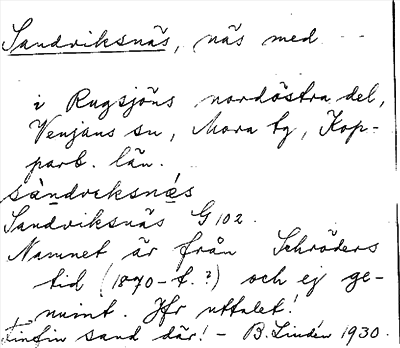 Sandviksnäs, näs med - -
i Rugsjöns nordöstra del,
Venjans sn, Mora tg, Kop-
parb. län.
sàndveksnä́s
Sandviksnäs G 102.
Namnet är från Schröders
tid (1870-t.?) och ej ge-
nuint. Jfr uttalet!
Finfin sand där! - B. Lindén 1930.